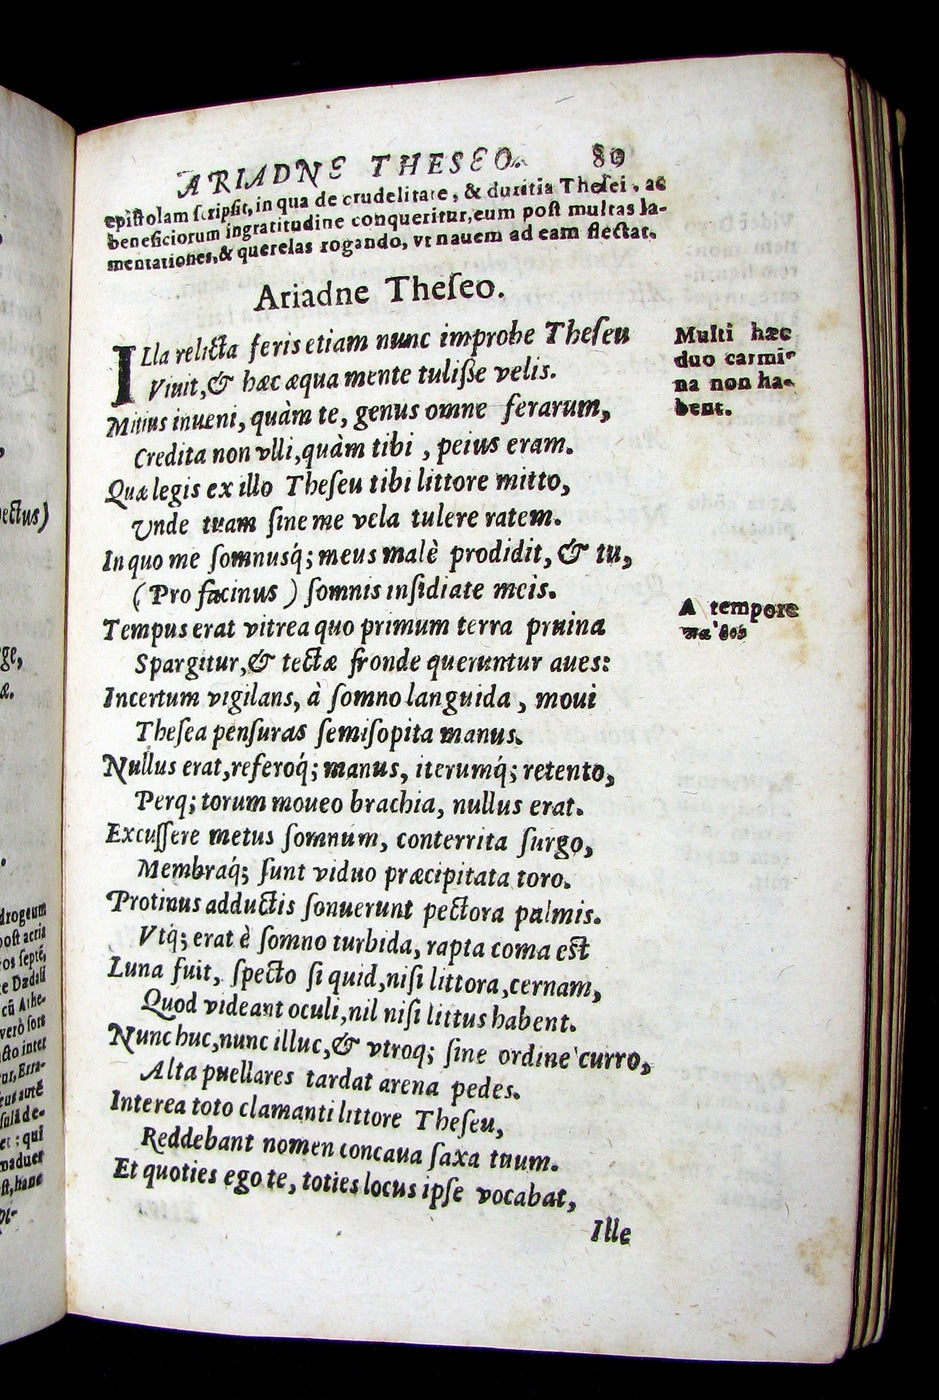 ARIADNE THESEO. 80
epistolam scripsit, in qua de crudelitate, & duritia Thesei, ac
beneficiorum ingratitudine conqueritur, eum post multas la-
mentationes, & querelas rogando, vt nauem ad eam flectat.
Ariadne Theseo.
ILla relicta feris etiam nunc improbe Theseu
Viuit, & hæc æqua mente tulisse velis.
Mitius inueni, quàm te, genus omne ferarum,
Credita non vlli, quàm tibi, peius eram.
Quæ legis ex illo Theseu tibi littore mitto,
Vnde tuam sine me vela tulere ratem.
In quo me somnusq́; meus malè prodidit, & tu,
(Pro facinus) somnis insidiate meis.
Tempus erat vitrea quo primum terra pruina
Spargitur, & tectæ fronde queruntur aues:
Incertum vigilans, à somno languida, moui
Thesea pensuras semisopita manus.
Nullus erat, referoq́; manus, iterumq́; retento,
Perq; torum moueo brachia, nullus erat.
Excussere metus somnum, conterrita surgo,
Membraq́; sunt viduo præcipitata toro.
Protinus adductis sonuerunt pectora palmis.
Vtq́; erat è somno turbida, rapta coma est
Luna fuit, specto si quid, nisi littora, cernam,
Quod videant oculi, nil nisi littus habent.
Nunc huc, nunc illuc, & vtroq; sine ordine curro,
Alta puellares tardat arena pedes.
Interea toto clamanti littore Theseu,
Reddebant nomen concaua saxa tuum.
Et quoties ego te, toties locus ipse vocabat,
Ille
Multi hæc
duo carmi-
na non ha-
bent.
A tempore
ectus)
ge,
æ.
drogeum
post acria
ros septē,
e Dædali
cū Athe-
verò sors
cto inter
sulā de-
et : qui
st, hanc